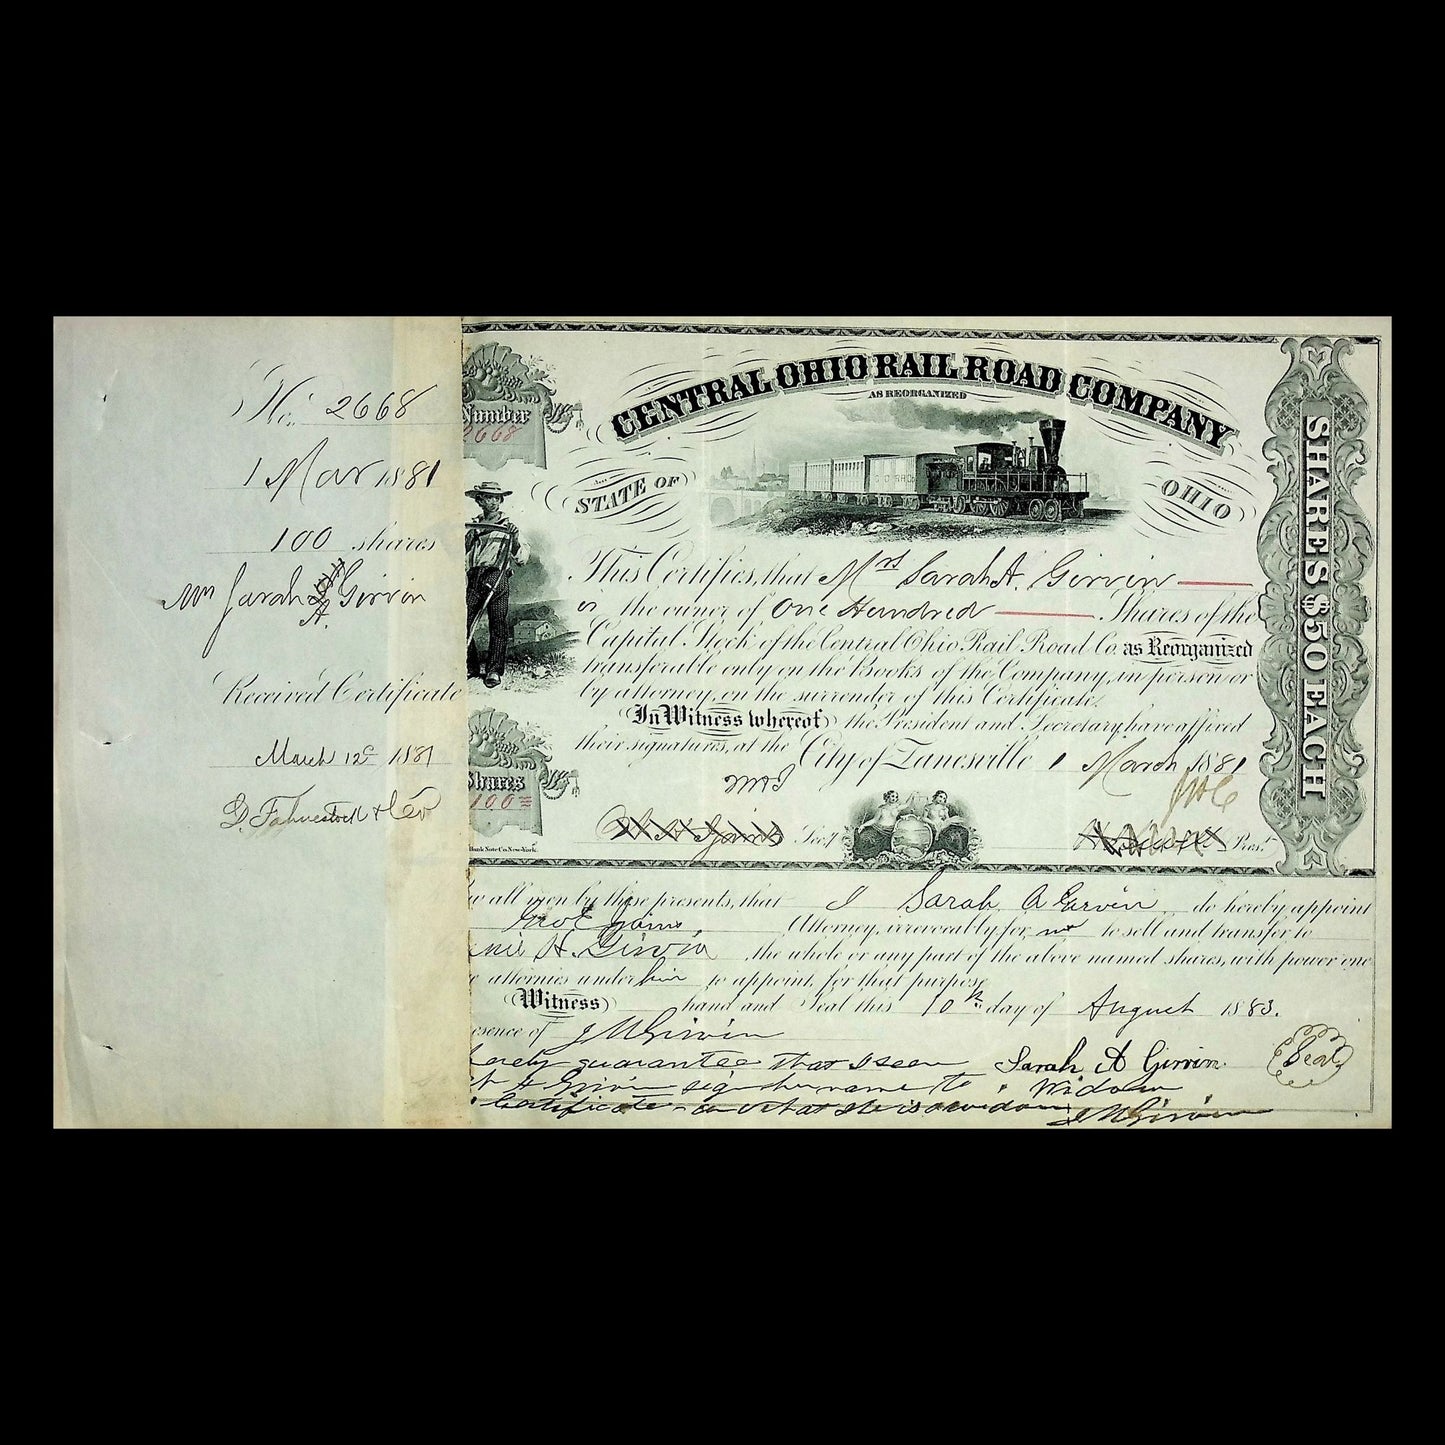 No. 2668
1 Mar 1881
100 shares
Mrs Sarah A. Girvin
Received Certificate
March 12 1881
D. Fahnestock & Co
Number
2668
CENTRAL OHIO RAIL ROAD COMPANY
AS REORGANIZED
STATE OF OHIO
This Certifies, that Mrs Sarah A. Girvin
is the owner of One Hundred Shares of the
Capital Stock of the Central Ohio Rail Road Co. as Reorganized
transferable only on the Books of the Company, in person or
by attorney, on the surrender of this Certificate.
In Witness whereof the President and Secretary, have affixed
their signatures, at the City of Zanesville 1 March 1881
Shares
100
Secy
Prest
Bank Note Co. New-York.
SHARES $50 EACH
all men by these presents, that I Sarah A Garvin do hereby appoint
Attorney, irrevocably, for me to sell and transfer to
H. Girvin the whole or any part of the above named shares, with power one
attornies under him to appoint, for that purpose
Witness hand and Seal this 10th day of August 1883.
esence of J M Girvin
guarantee that I seen Sarah A Girvin Seal
A Girvin sign her name to Widow
Certificate and that she is a widow
J M Girvin